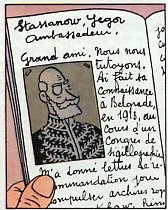 Stassanow, Yegor
Ambassadeur.
Grand ami. Nous nous
tutoyons.
Ai fait sa
connaissance
à Belgrade,
en 1913, au
cours d'un
congrès de
M'a donné lettres de re-
commandation pour
compulser archives